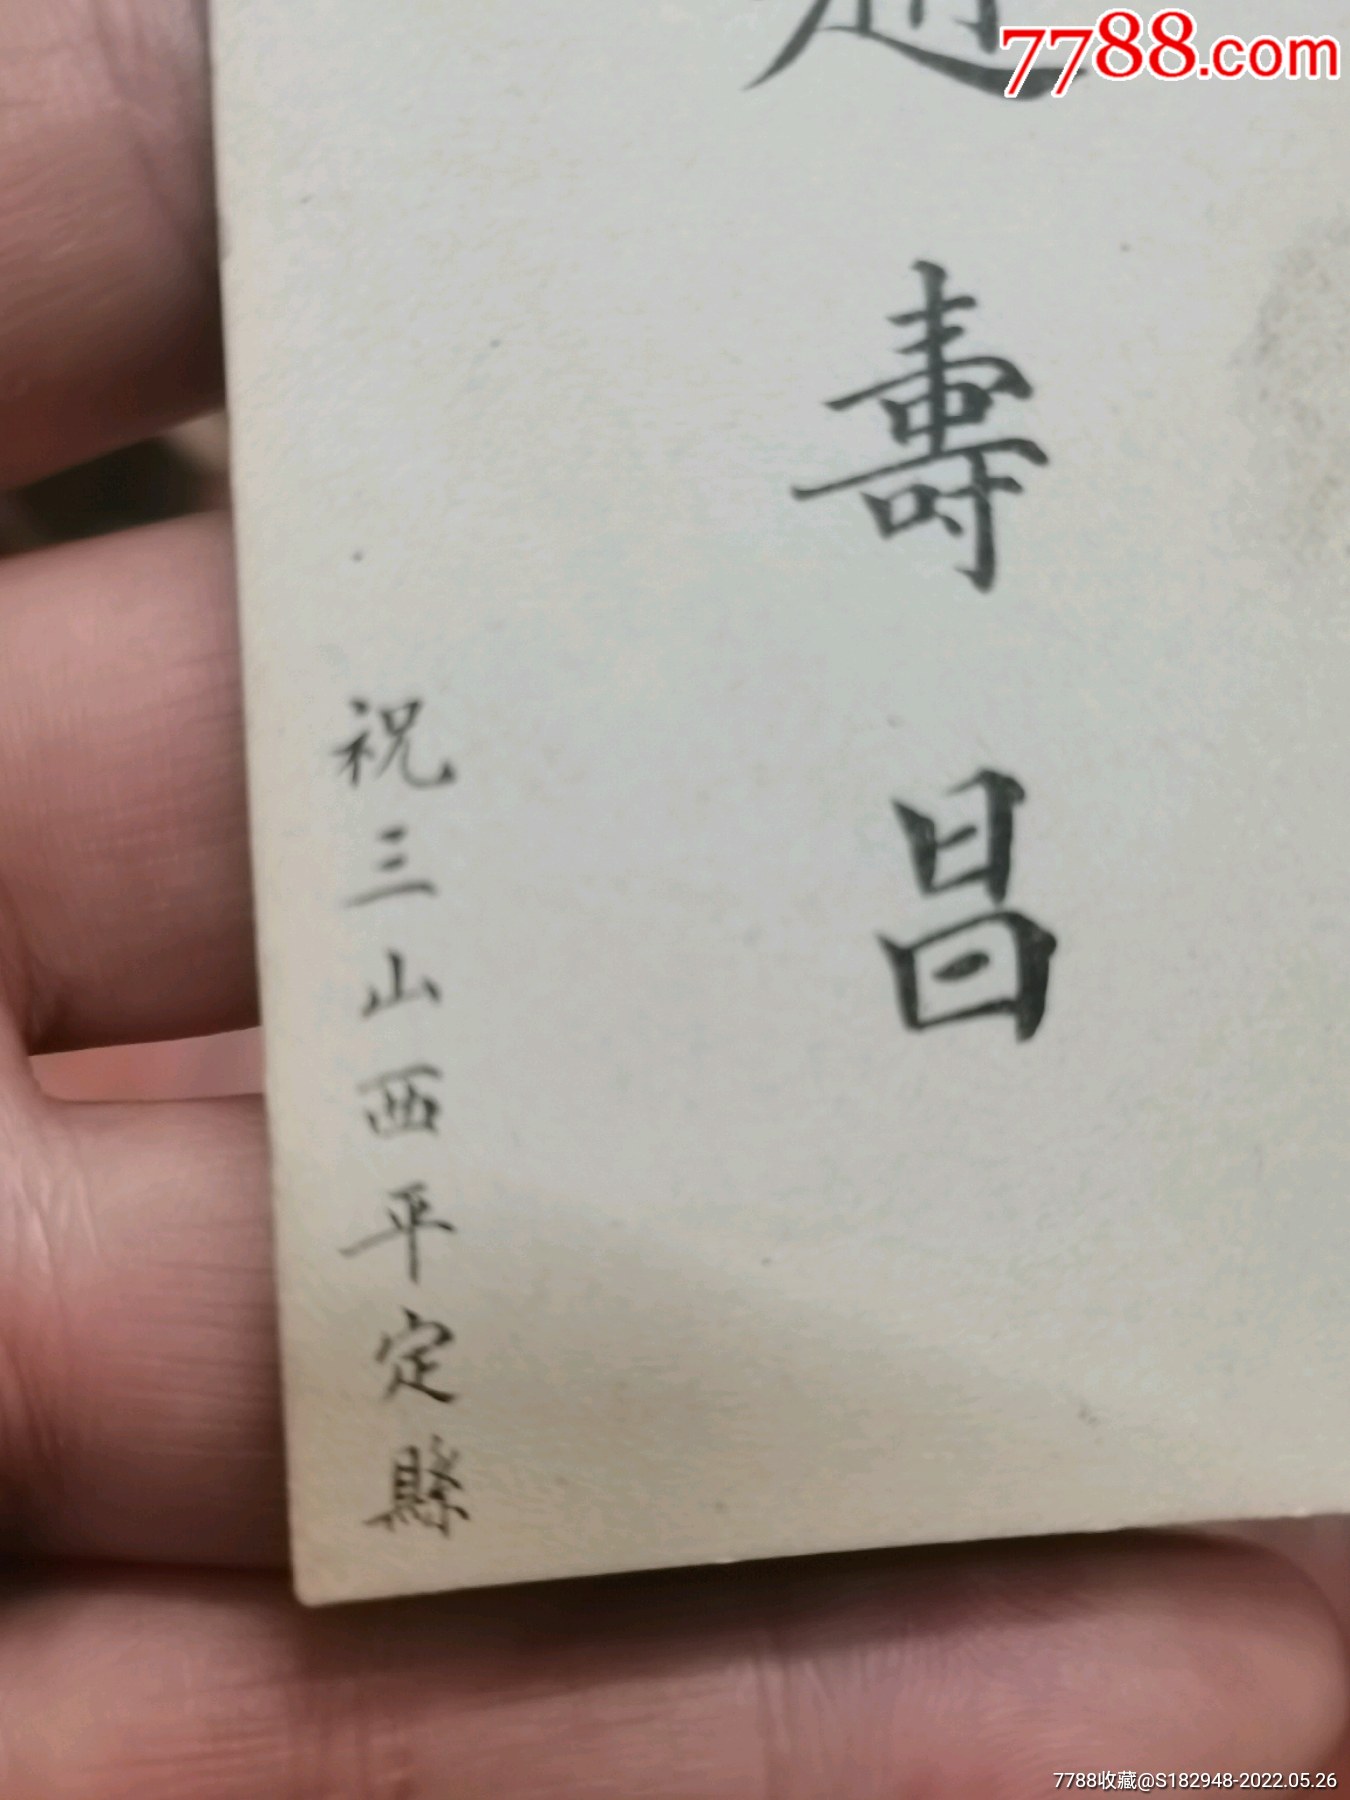 7788.com
趙壽昌
祝三山西平定縣
7788收藏@S182948-2022.05.26